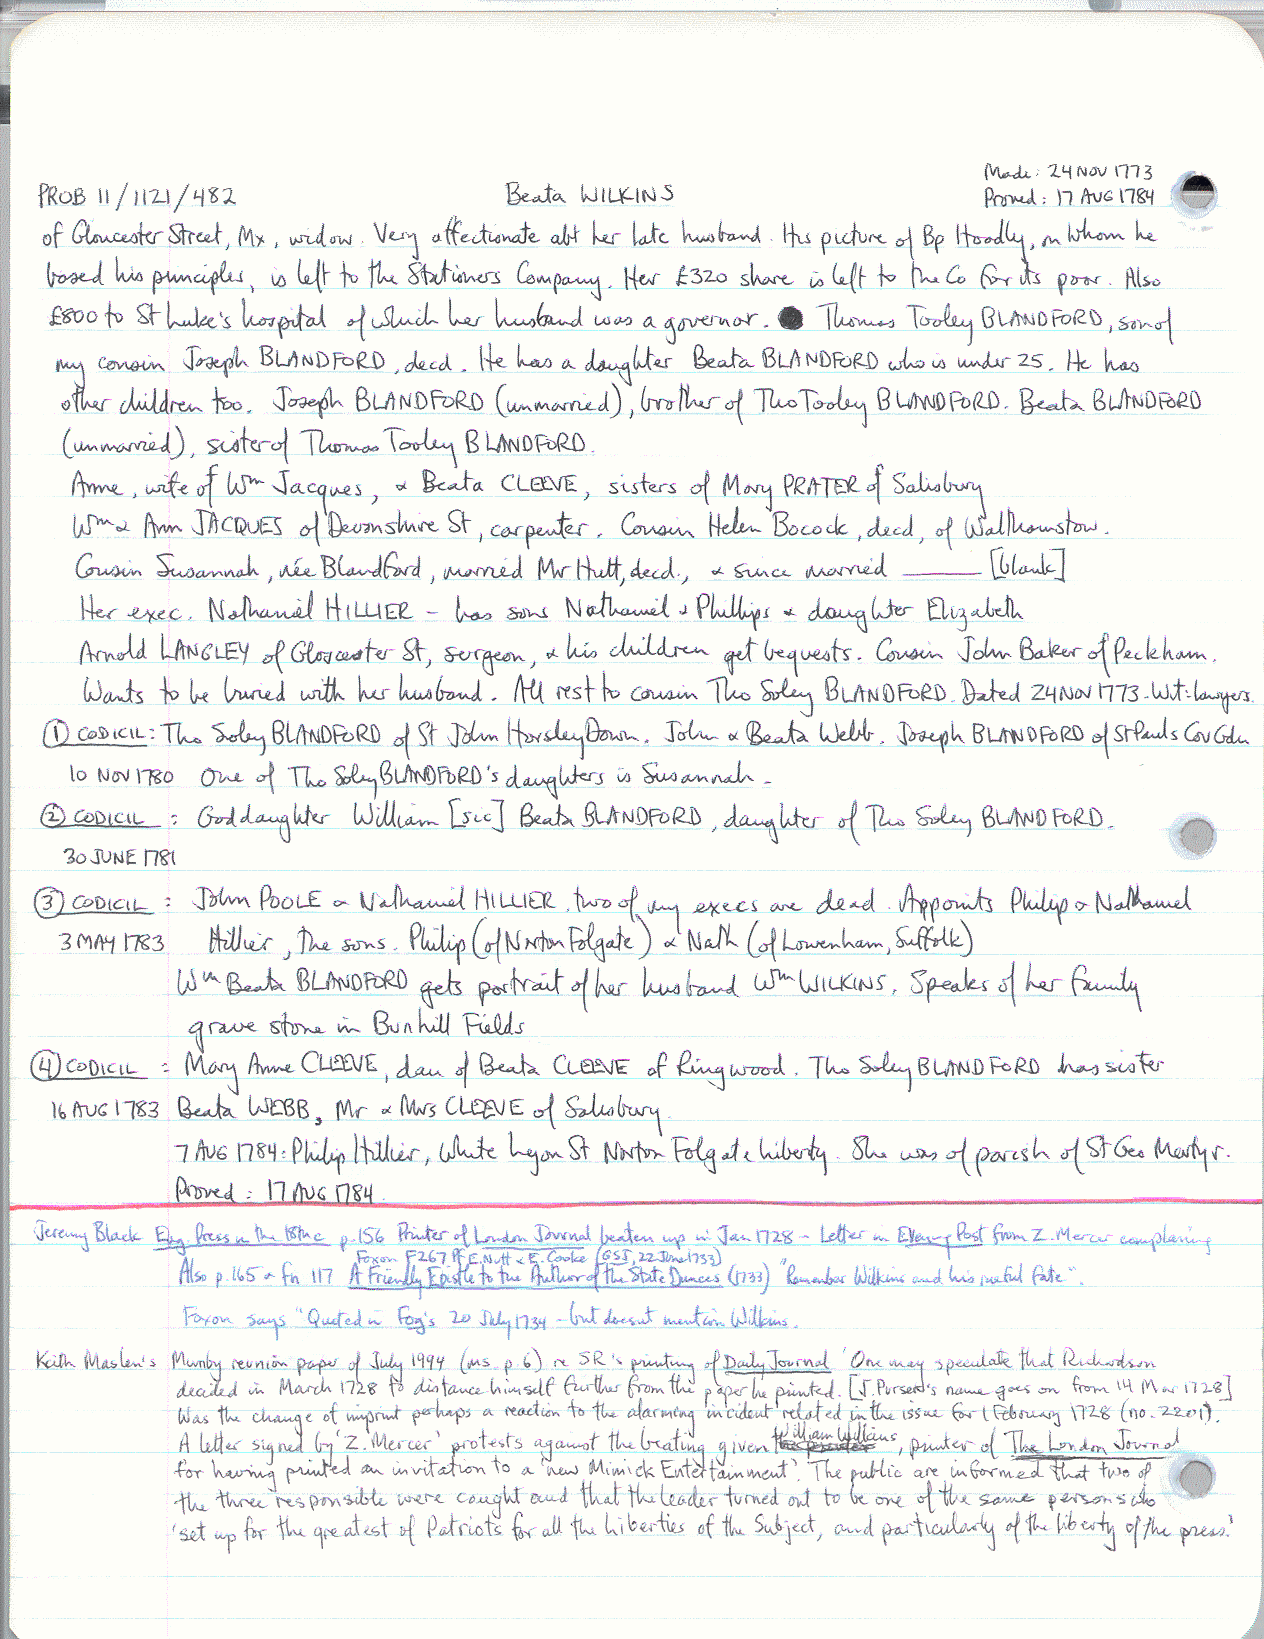 Made: 24 NOV 1773
PROB 11/1121/482 Beata WILKINS Proved: 17 AUG 1784
of Gloucester Street, Mx, widow. Very affectionate abt her late husband. His picture of Bp Hoadly, on whom he
based his principles, is left to the Stationers Company. Her £320 share is left to the Co for its poor. Also
£800 to St Luke's hospital of which her husband was a governor. Thomas Tooley BLANDFORD, son of
my cousin Joseph BLANDFORD, decd. He has a daughter Beata BLANDFORD who is under 25. He has
other children too. Joseph BLANDFORD (unmarried), brother of Tho Tooley BLANDFORD. Beata BLANDFORD
(unmarried), sister of Thomas Tooley BLANDFORD.
Anne, wife of Wm Jacques, & Beata CLEEVE, sisters of Mary PRATER of Salisbury
Wm & Ann JACQUES of Devonshire St, carpenter. Cousin Helen Bocock, decd, of Walthamstow.
Cousin Susannah, née Blandford, married Mr Hutt, decd., & since married ——— [blank]
Her exec. Nathaniel HILLIER – has sons Nathaniel & Phillips & daughter Elizabeth
Arnold LANGLEY of Gloucester St, surgeon, & his children get bequests. Cousin John Baker of Peckham.
Wants to be buried with her husband. All rest to cousin Tho Soley BLANDFORD. Dated 24 NOV 1773. Wit: lawyers.
① CODICIL: Tho Soley BLANDFORD of St John HorsleyDown. John & Beata Webb. Joseph BLANDFORD of St Pauls Cov Gdn
10 NOV 1780 One of Tho Soley BLANDFORD's daughters is Susannah –
② CODICIL: Goddaughter William [sic] Beata BLANDFORD, daughter of Tho Soley BLANDFORD.
30 JUNE 1781
③ CODICIL: John POOLE & Nathaniel HILLIER, two of my execs are dead. Appoints Philip & Nathaniel
3 MAY 1783 Hillier, the sons. Philip (of Norton Folgate) & Nath (of Lowenham, Suffolk)
Wm Beata BLANDFORD gets portrait of her husband Wm WILKINS. Speaks of her family
grave stone in Bunhill Fields
④ CODICIL: Mary Anne CLEEVE, dau of Beata CLEEVE of Ringwood. Tho Soley BLANDFORD has sister
16 AUG 1783 Beata WEBB, Mr & Mrs CLEEVE of Salisbury.
7 AUG 1784: Philip Hillier, White Lyon St Norton Folgate Liberty. She was of parish of St Geo Martyr.
Proved: 17 AUG 1784.
Jeremy Black Eng. Press in the 18thc p.156 Printer of London Journal beaten up in Jan 1728 – Letter in Evening Post from Z. Mercer complaining
Foxon F267 ff E. Nutt & E. Cooke (GSJ, 22 June 1733)
Also p.165 & fn 117 A Friendly Epistle to the Author of the State Dunces (1733) "Remember Wilkins and his rueful fate".
Foxon says "Quoted in Fog's 20 July 1734 – but doesnt mention Wilkins.
Keith Maslen's Mumby reunion paper of July 1994 (ms p.6) re SR's printing of Daily Journal 'One may speculate that Richardson
decided in March 1728 to distance himself further from the paper he printed. [J. Purser's name goes on from 14 Mar 1728]
Was the change of imprint perhaps a reaction to the alarming incident related in the issue for 1 February 1728 (no. 2201).
A letter signed by 'Z. Mercer' protests against the beating given William Wilkins, printer of The London Journal
for having printed an invitation to a 'new Mimick Entertainment'. The public are informed that two of
the three responsible were caught and that the leader turned out to be one of the same persons who
'set up for the greatest of Patriots for all the Liberties of the Subject, and particularly of the liberty of the press.'